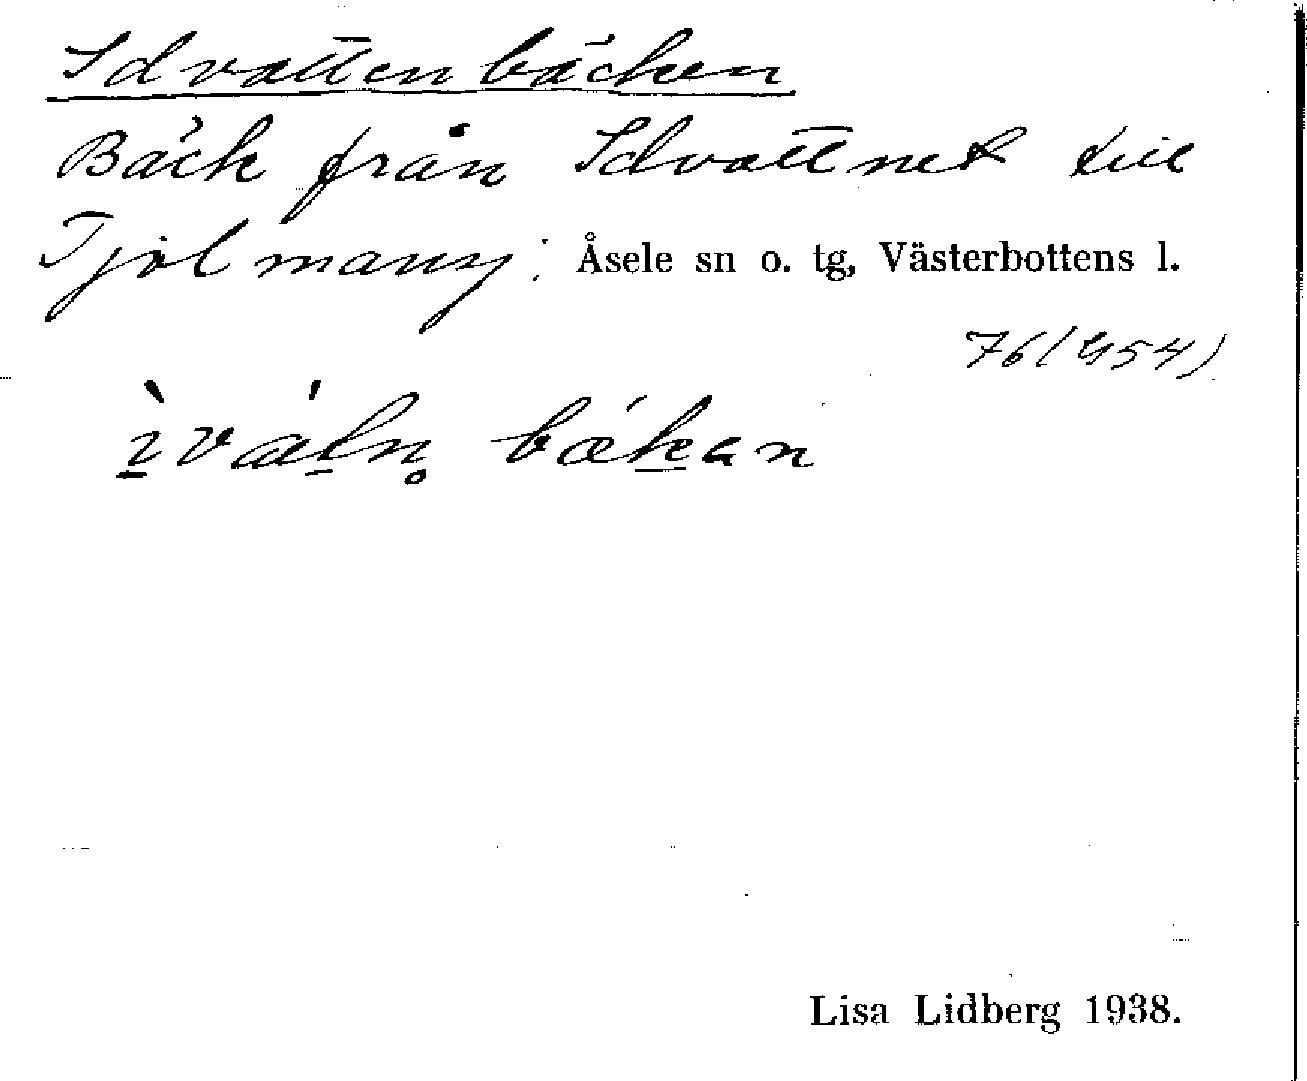 Idvattenbäcken
Bäck från Idvattnet till
Tjålmany: Åsele sn o. tg, Västerbottens l.
bækan
Lisa Lidberg 1938.